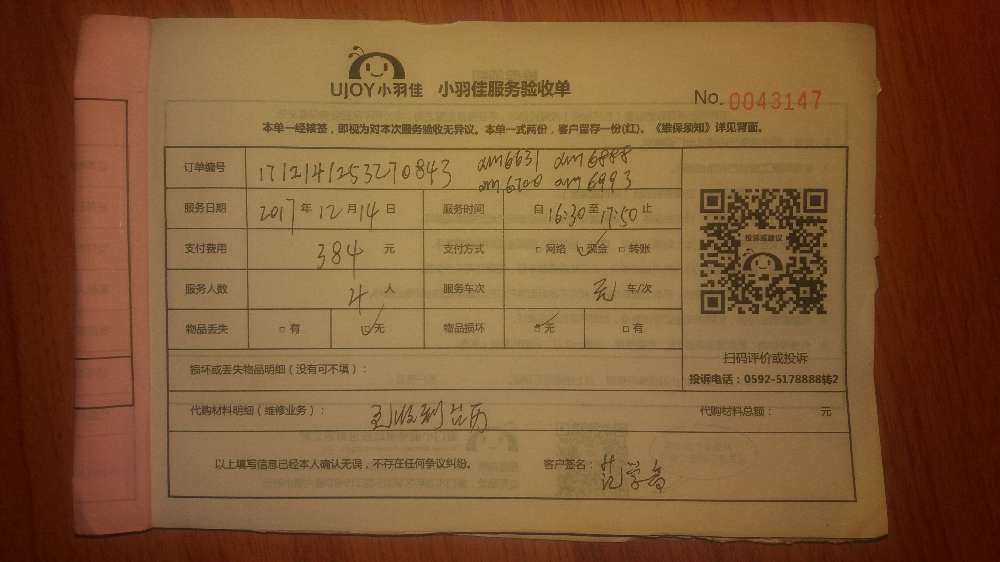 UJOY小羽佳 小羽佳服务验收单
No. 0043147
本单一经核签，即视为对本次服务验收无异议。本单一式两份，客户留存一份(红)。《维保须知》详见背面。
订单编号 171214125327 0843 am6631 am6888
am6700 am6993
服务日期 2017年12月14日 服务时间 自16:30至17:50止
支付费用 384元 支付方式 □网络 □现金 □转账
服务人数 4人 服务车次 无 车/次
物品丢失 □有 □无 物品损坏 □无 □有
投诉或建议
扫码评价或投诉
投诉电话：0592-5178888转2
损坏或丢失物品明细（没有可不填）：
代购材料明细（维修业务）： 收到台历 代购材料总额： 元
以上填写信息已经本人确认无误，不存在任何争议纠纷。 客户签名： 范学